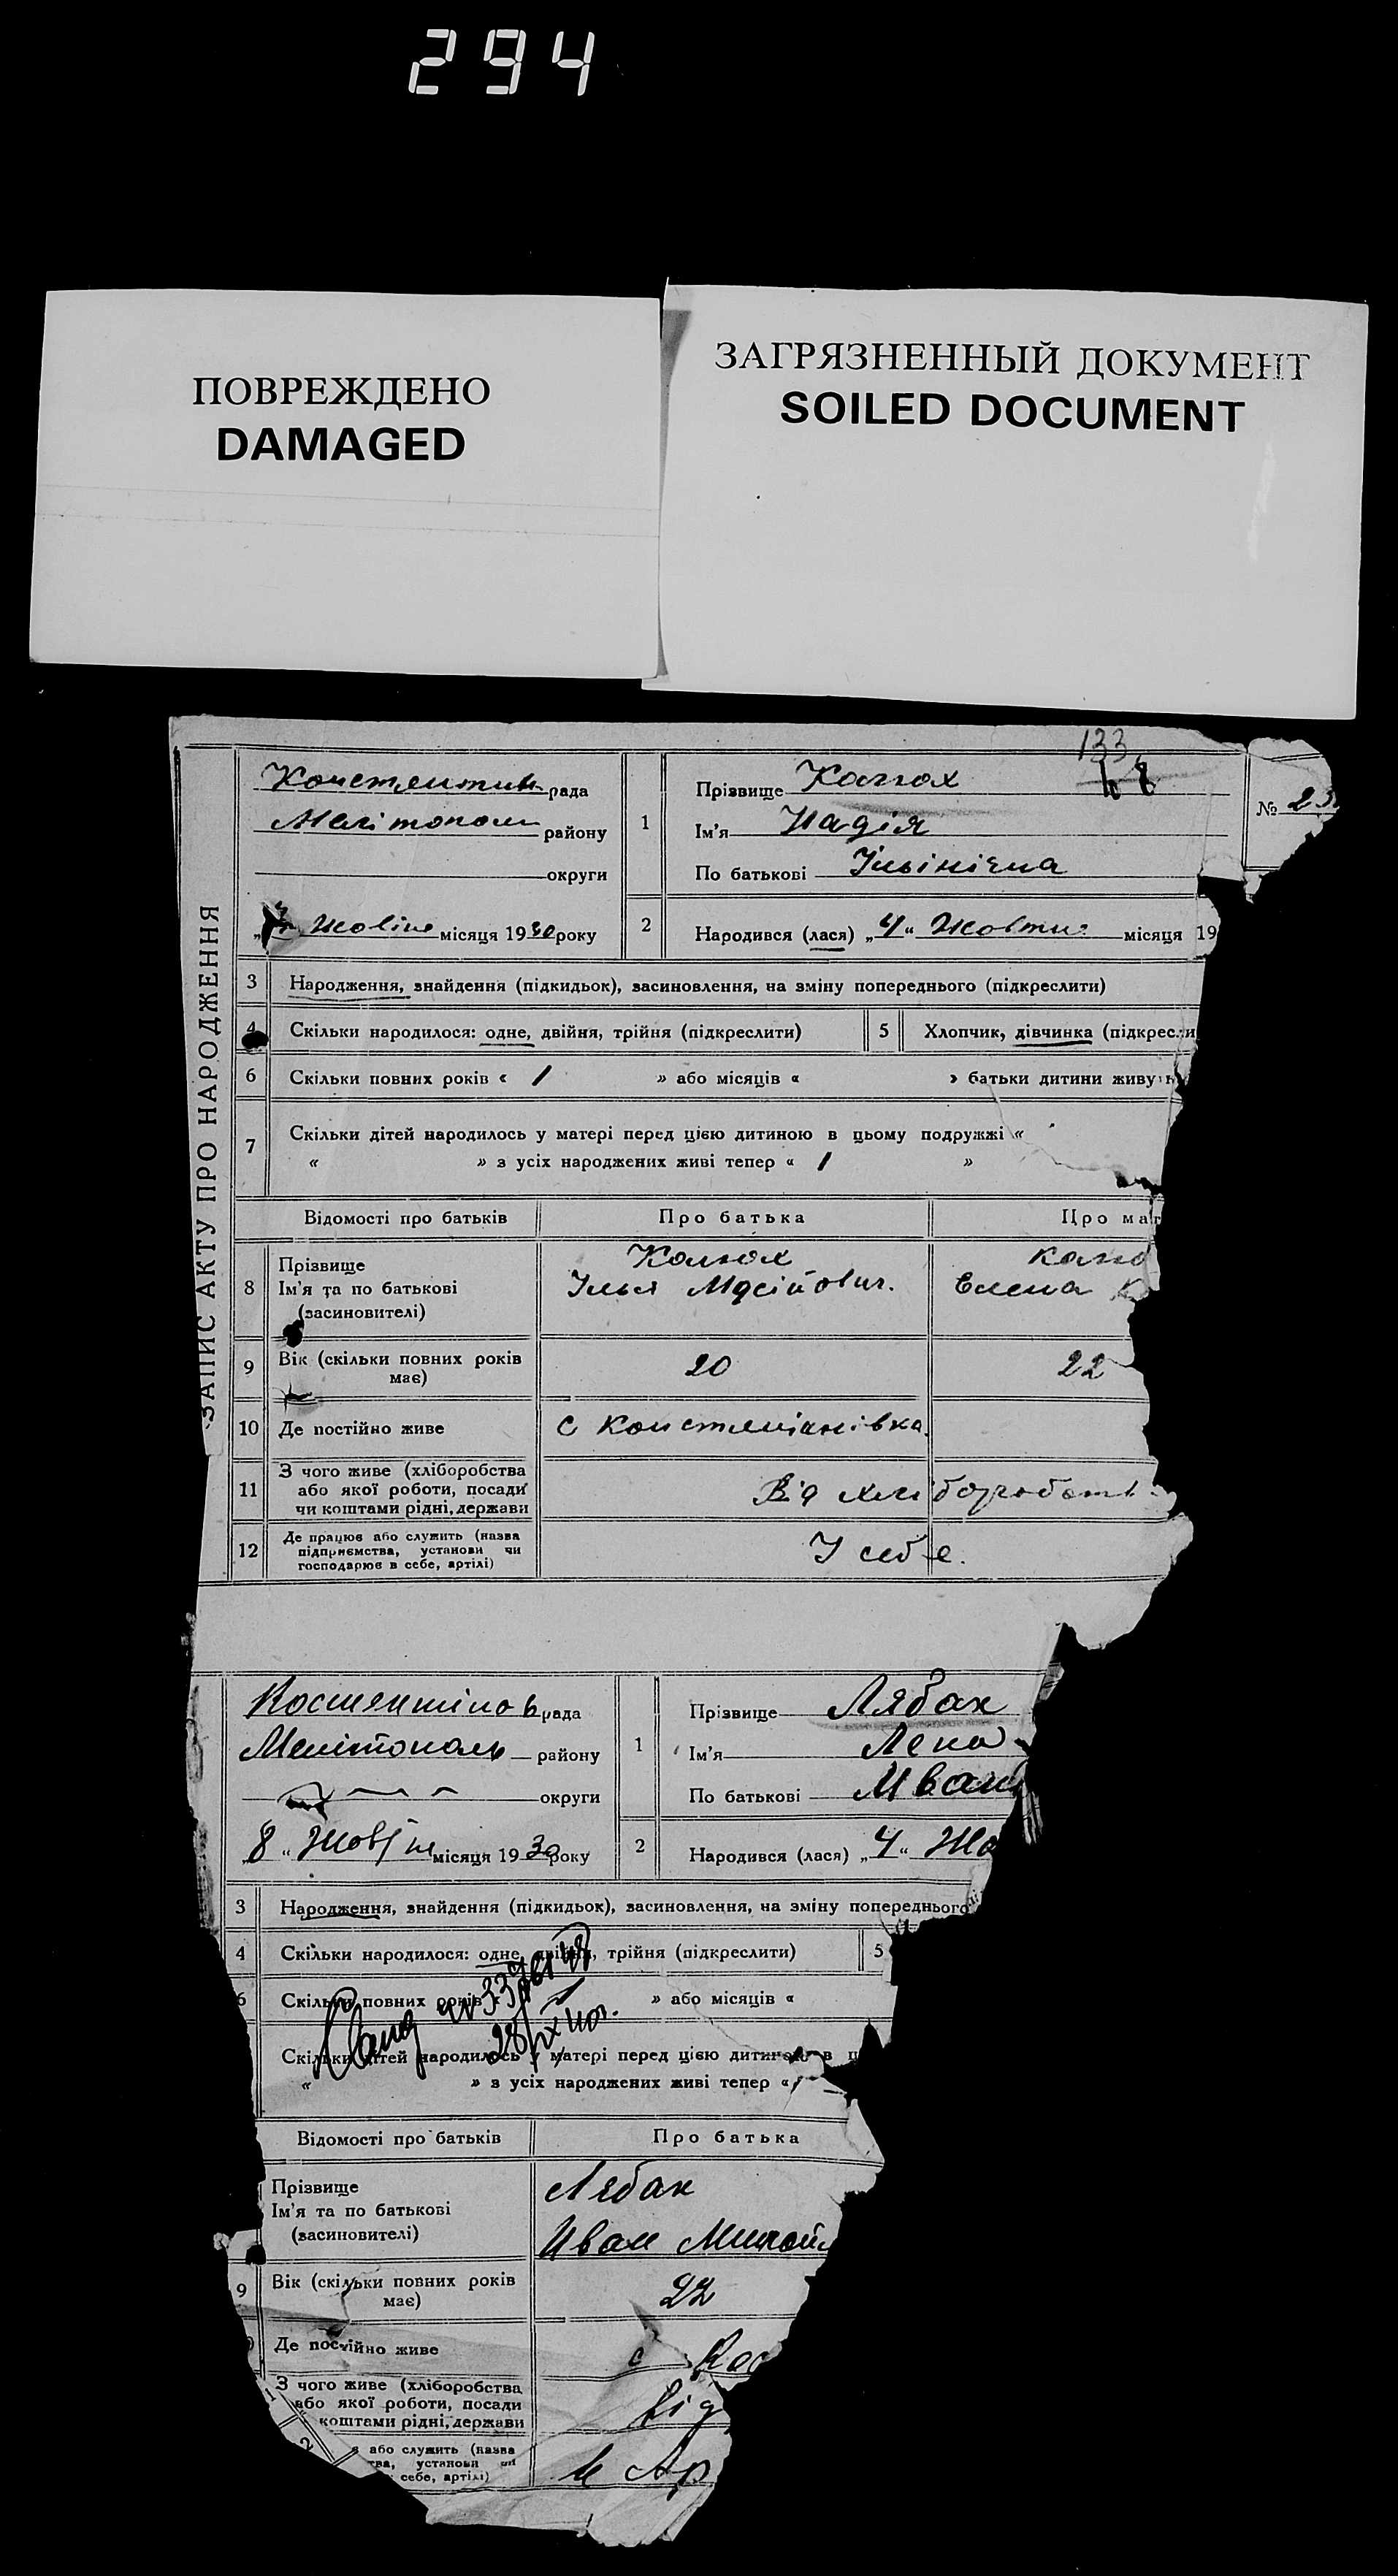 294
ПОВРЕЖДЕНО
DAMAGED
ЗАГРЯЗНЕННЫЙ ДОКУМЕНТ
SOILED DOCUMENT
ЗАПИС АКТУ ПРО НАРОДЖЕННЯ
133
рада
району
округи
Жовтня місяця 1930 року
1
Прізвище
Ім'я Надія
По батькові Ільінічна
№ 23
2
Народився (лася) „4“ Жовтня місяця 19
3 Народження, знайдення (підкидьок), засиновлення, на зміну попереднього (підкреслити)
4 Скільки народилося: одне, двійня, трійня (підкреслити)
5 Хлопчик, дівчинка (підкресли
6 Скільки повних років « 1 » або місяців « » батьки дитини живуть
7 Скільки дітей народилось у матері перед цією дитиною в цьому подружжі «
« » з усіх народжених живі тепер « 1 »
Відомості про батьків Про батька Про мат
8 Прізвище
Ім'я та по батькові Ілья Мусійович. Елена К
(засиновителі)
9 Вік (скільки повних років має) 20 22
10 Де постійно живе с
11 З чого живе (хліборобства або якої роботи, посади чи коштами рідні, держави Від хліборобства
12 Де працює або служить (назва підприємства, установи чи господарює в себе, артілі) У себе.
Костянтінов рада
Мелітополь району
округи
8 „ місяця 1930 року
1
Прізвище Лябах
Ім'я Лена
По батькові Иван
2
Народився (лася) „4“ Жо
3 Народження, знайдення (підкидьок), засиновлення, на зміну попереднього
4 Скільки народилося: одне, двійня, трійня (підкреслити)
5
6 Скільки повних років « » або місяців «
Скільки дітей народилось у матері перед цією дитиною в ц
« » з усіх народжених живі тепер «
Відомості про батьків Про батька
Прізвище Лябах
Ім'я та по батькові
(засиновителі) Иван
9 Вік (скільки повних років має) 22
Де постійно живе с Кос
З чого живе (хліборобства або якої роботи, посади коштами рідні, держави від
або служить (назва
тва, установи чи
себе, артілі) Ар